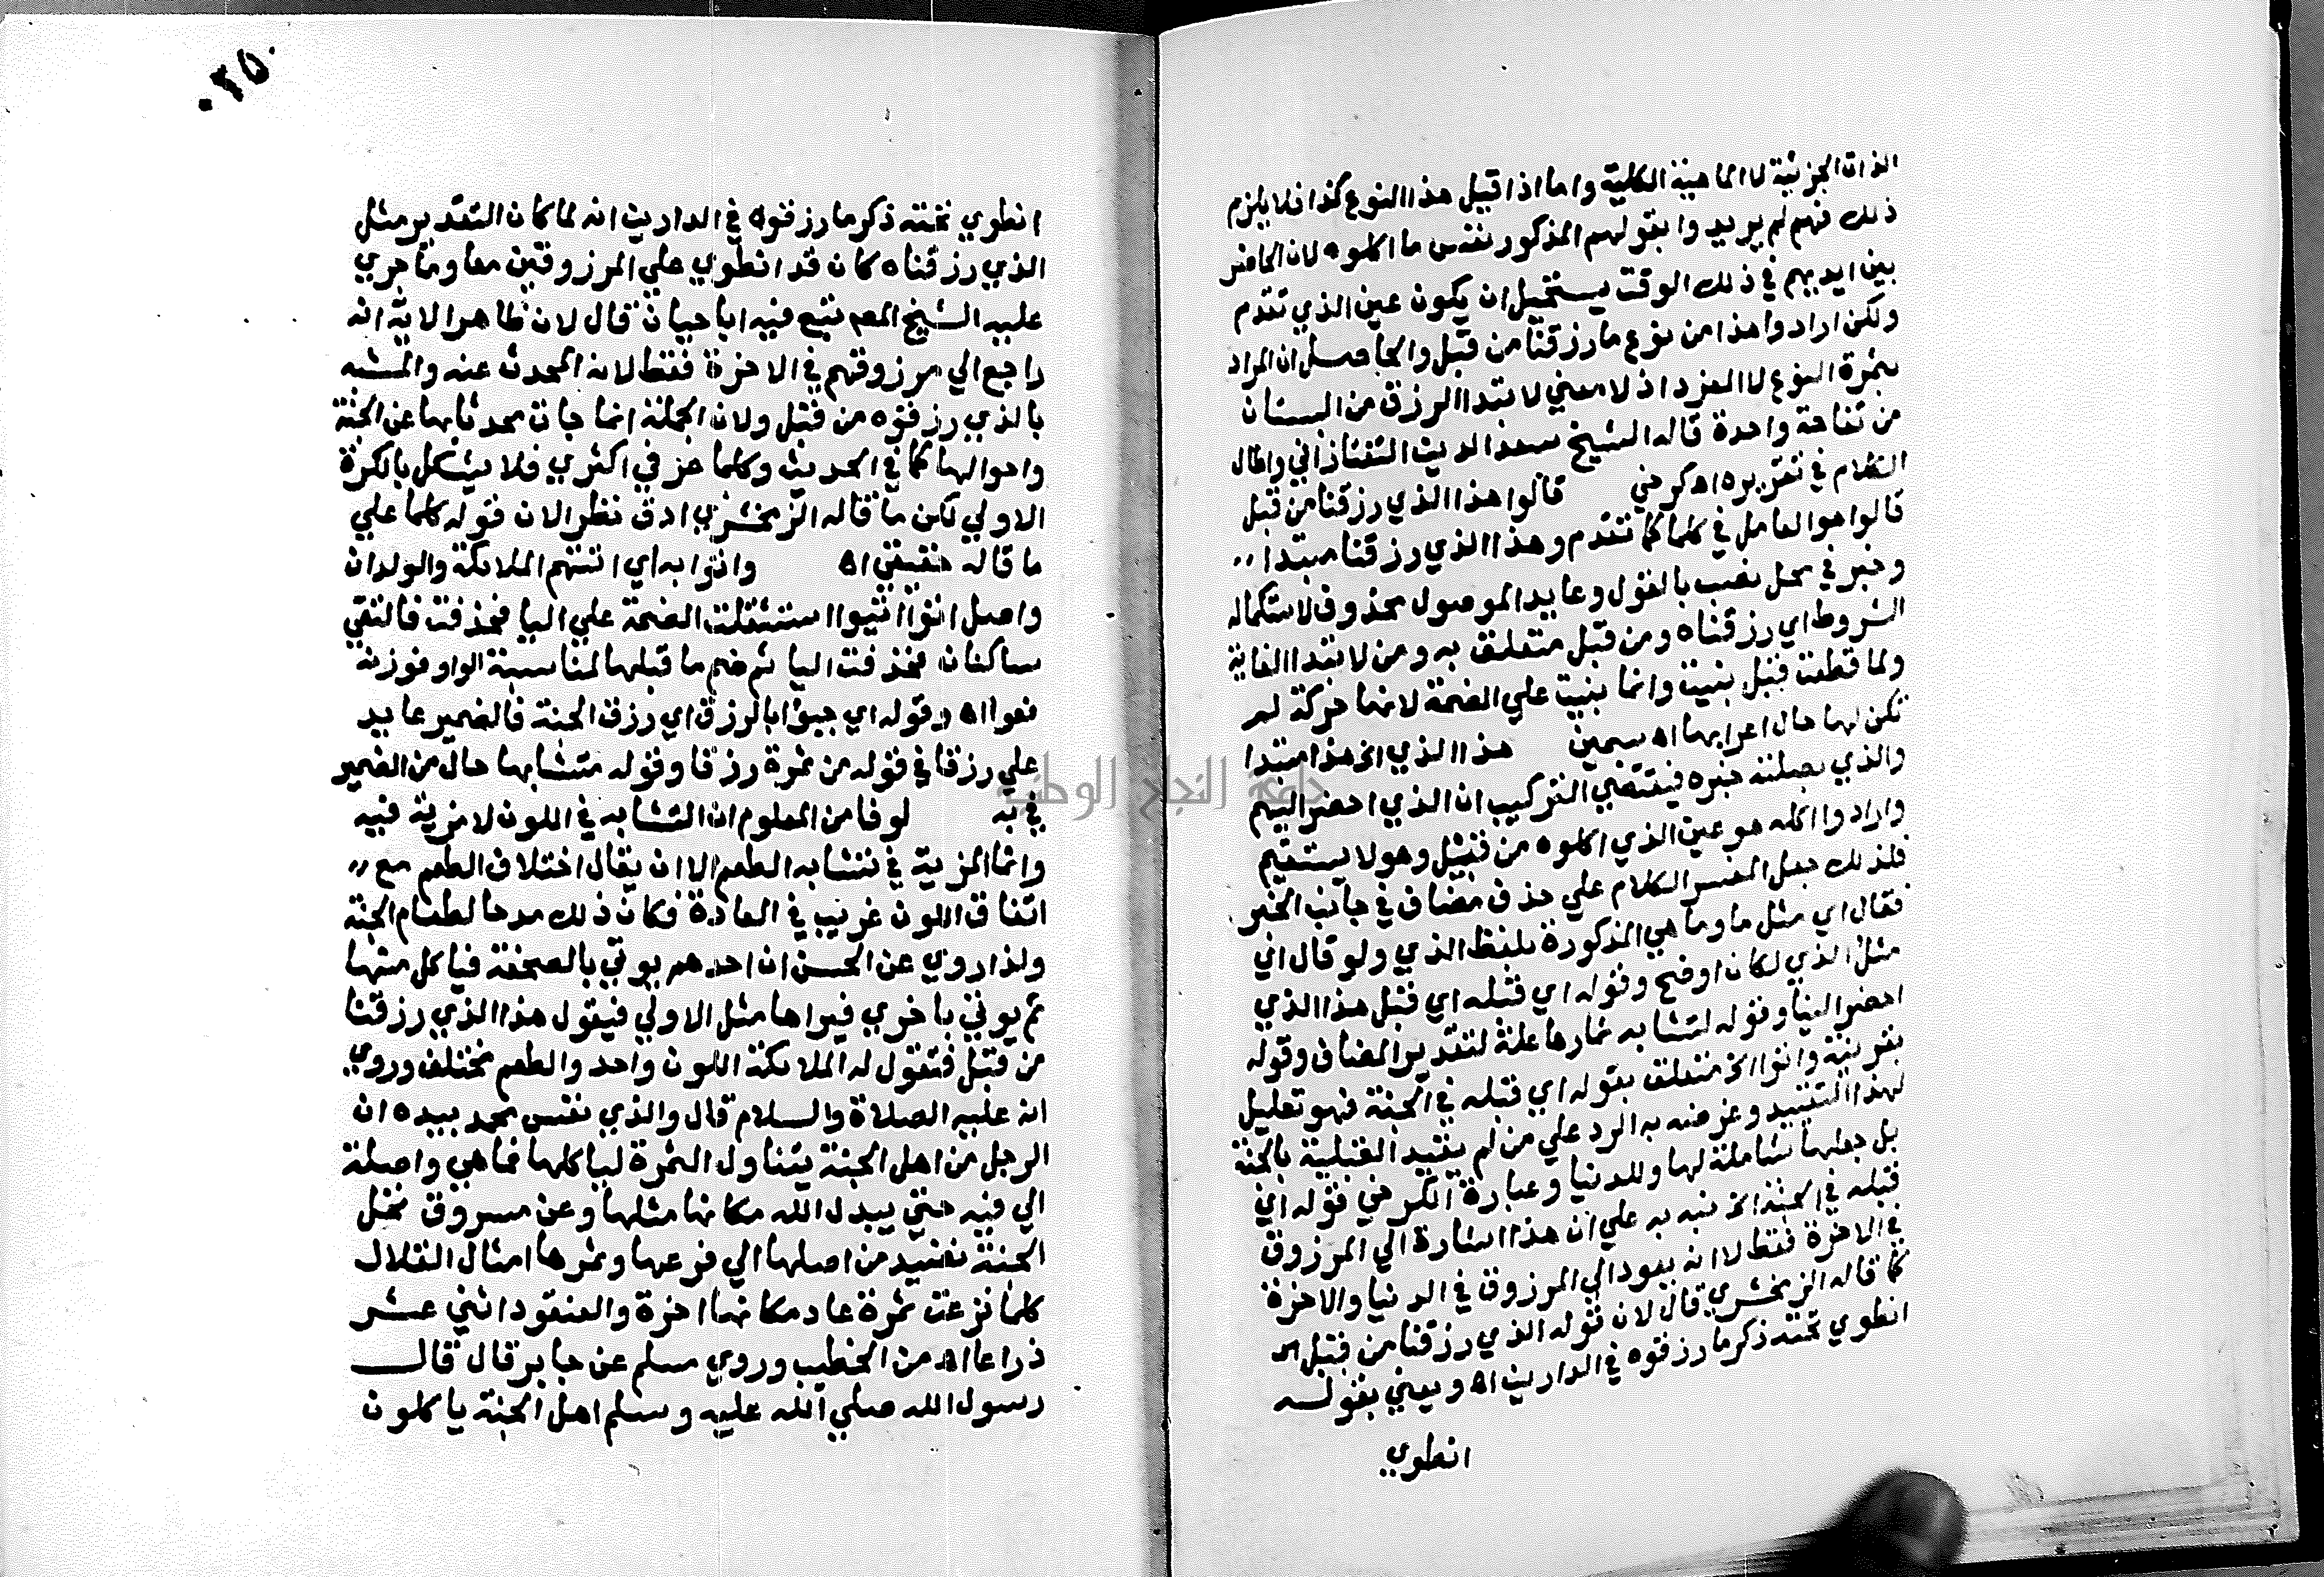 الذات الجزئية لا الماهية الكلية واما اذا قيل هذا النوع كذا فلا يلزم
ذلك فهم لم يريدوا بقولهم المذكور نفس ما اكلوه لان الحاضر
بين ايديهم في ذلك الوقت يستحيل ان يكون عين الذي تقدم
ولكن ارادوا هذا من نوع ما رزقنا من قبل والحاصل ان المراد
بثمرة النوع لا الفرد اذ لا معني لابتدا الرزق من البستان
من تفاحة واحدة قاله الشيخ سعد الدين التفتازاني واطال
الكلام في تقريره اه كرخي قالوا هذا الذي رزقنا من قبل
قالوا هو العامل في كلما كما تقدم وهذا الذي رزقنا مبتدا
وخبر في محل نصب بالقول وعايد الموصول محذوف لاستكماله
الشروط اي رزقناه ومن قبل متعلق به ومن لابتدا الغاية
ولما قطعت قبل بنيت وانما بنيت علي الضمة لانها حركة لم
تكن لها حال اعرابها اه سمين هذا الذي الخ هذا مبتدا
والذي بصلته خبره فيقتضي التركيب ان الذي احضر اليهم
وارادوا اكله هو عين الذي اكلوه من قبل وهو لا يستقيم
فلذلك جعل المفسر الكلام علي حذف مضاف في جانب الخبر
فقال اي مثل ما وما هي المذكورة بلفظ الذي ولو قال اي
مثل الذي لكان اوضح وقوله اي قبله اي قبل هذا الذي
احضر الينا وقوله لتشابه ثمارها علة لتقدير المضاف وقوله
بقرينة واتوا الخ متعلق بقوله اي قبله في الجنة فهو تعليل
لهذا التقييد وغرضه به الرد علي من لم يقيد القبلية بالجنة
بل جعلها شاملة لها وللدنيا وعبارة الكرخي قوله اي
قبله في الجنة الخ نبه به علي ان هذا اشارة الي المرزوق
في الاخرة فقط لا انه يعود الي المرزوق في الدنيا والاخرة
كما قاله الزمخشري قال لان قوله الذي رزقنا من قبل
انطوي تحته ذكر ما رزقوه في الدارين اه ويعني بقوله
انطوي
٠٢٥
انطوي تحته ذكر ما رزقوه في الدارين انه لما كان التقدير مثل
الذي رزقناه كان قد انطوي علي المرزوقين معا وما جري
عليه الشيخ المصـ تبع فيه ابا حيان قال لان ظاهر الاية انه
راجع الي مرزوقهم في الاخرة فقط لانه المحدث عنه والمشبه
بالذي رزقوه من قبل ولان الجملة انما جات محدثا بها عن الجنة
واحوالها كما في الحديث وكلما عرفي اكثري فلا يشكل بالكرة
الاولي لكن ما قاله الزمخشري ادق نظرا لان قوله كلما علي
ما قاله حقيقي اه واتوا به اي اتتهم الملائكة والولدان
واصل اتوا اتيوا استثقلت الضمة علي اليا فحذفت فالتقي
ساكنان فحذفت اليا ثم ضم ما قبلها لمناسبة الواو فوزنه
فعوا اه وقوله اي جيؤا بالرزق اي رزق الجنة فالضمير عايد
علي رزقا في قوله من ثمرة رزقا وقوله متشابها حال من الضمير
في به لوفا من المعلوم ان التشابه في اللون لا مزية فيه
وانما المزية في تشابه الطعم الا ان يقال اختلاف الطعم مع
اتفاق اللون غريب في العادة فكان ذلك مدحا لطعام الجنة
ولذا روي عن الحسن ان احدهم يوتي بالصحفة فياكل منها
ثم يوتي باخري فيراها مثل الاولي فيقول هذا الذي رزقنا
من قبل فتقول له الملائكة اللون واحد والطعم مختلف وروي
انه عليه الصلاة والسلام قال والذي نفس محمد بيده ان
الرجل من اهل الجنة يتناول الثمرة لياكلها فما هي واصلة
الي فيه حتي يبدل الله مكانها مثلها وعن مسروق نخل
الجنة نضيد من اصلها الي فرعها وثمرها امثال القلال
كلما نزعت ثمرة عاد مكانها اخرة والعنقود اثني عشر
ذراعا اه من الخطيب وروي مسلم عن جابر قال قال
رسول الله صلي الله عليه وسلم اهل الجنة ياكلون
جامعة النجاح الوطنية